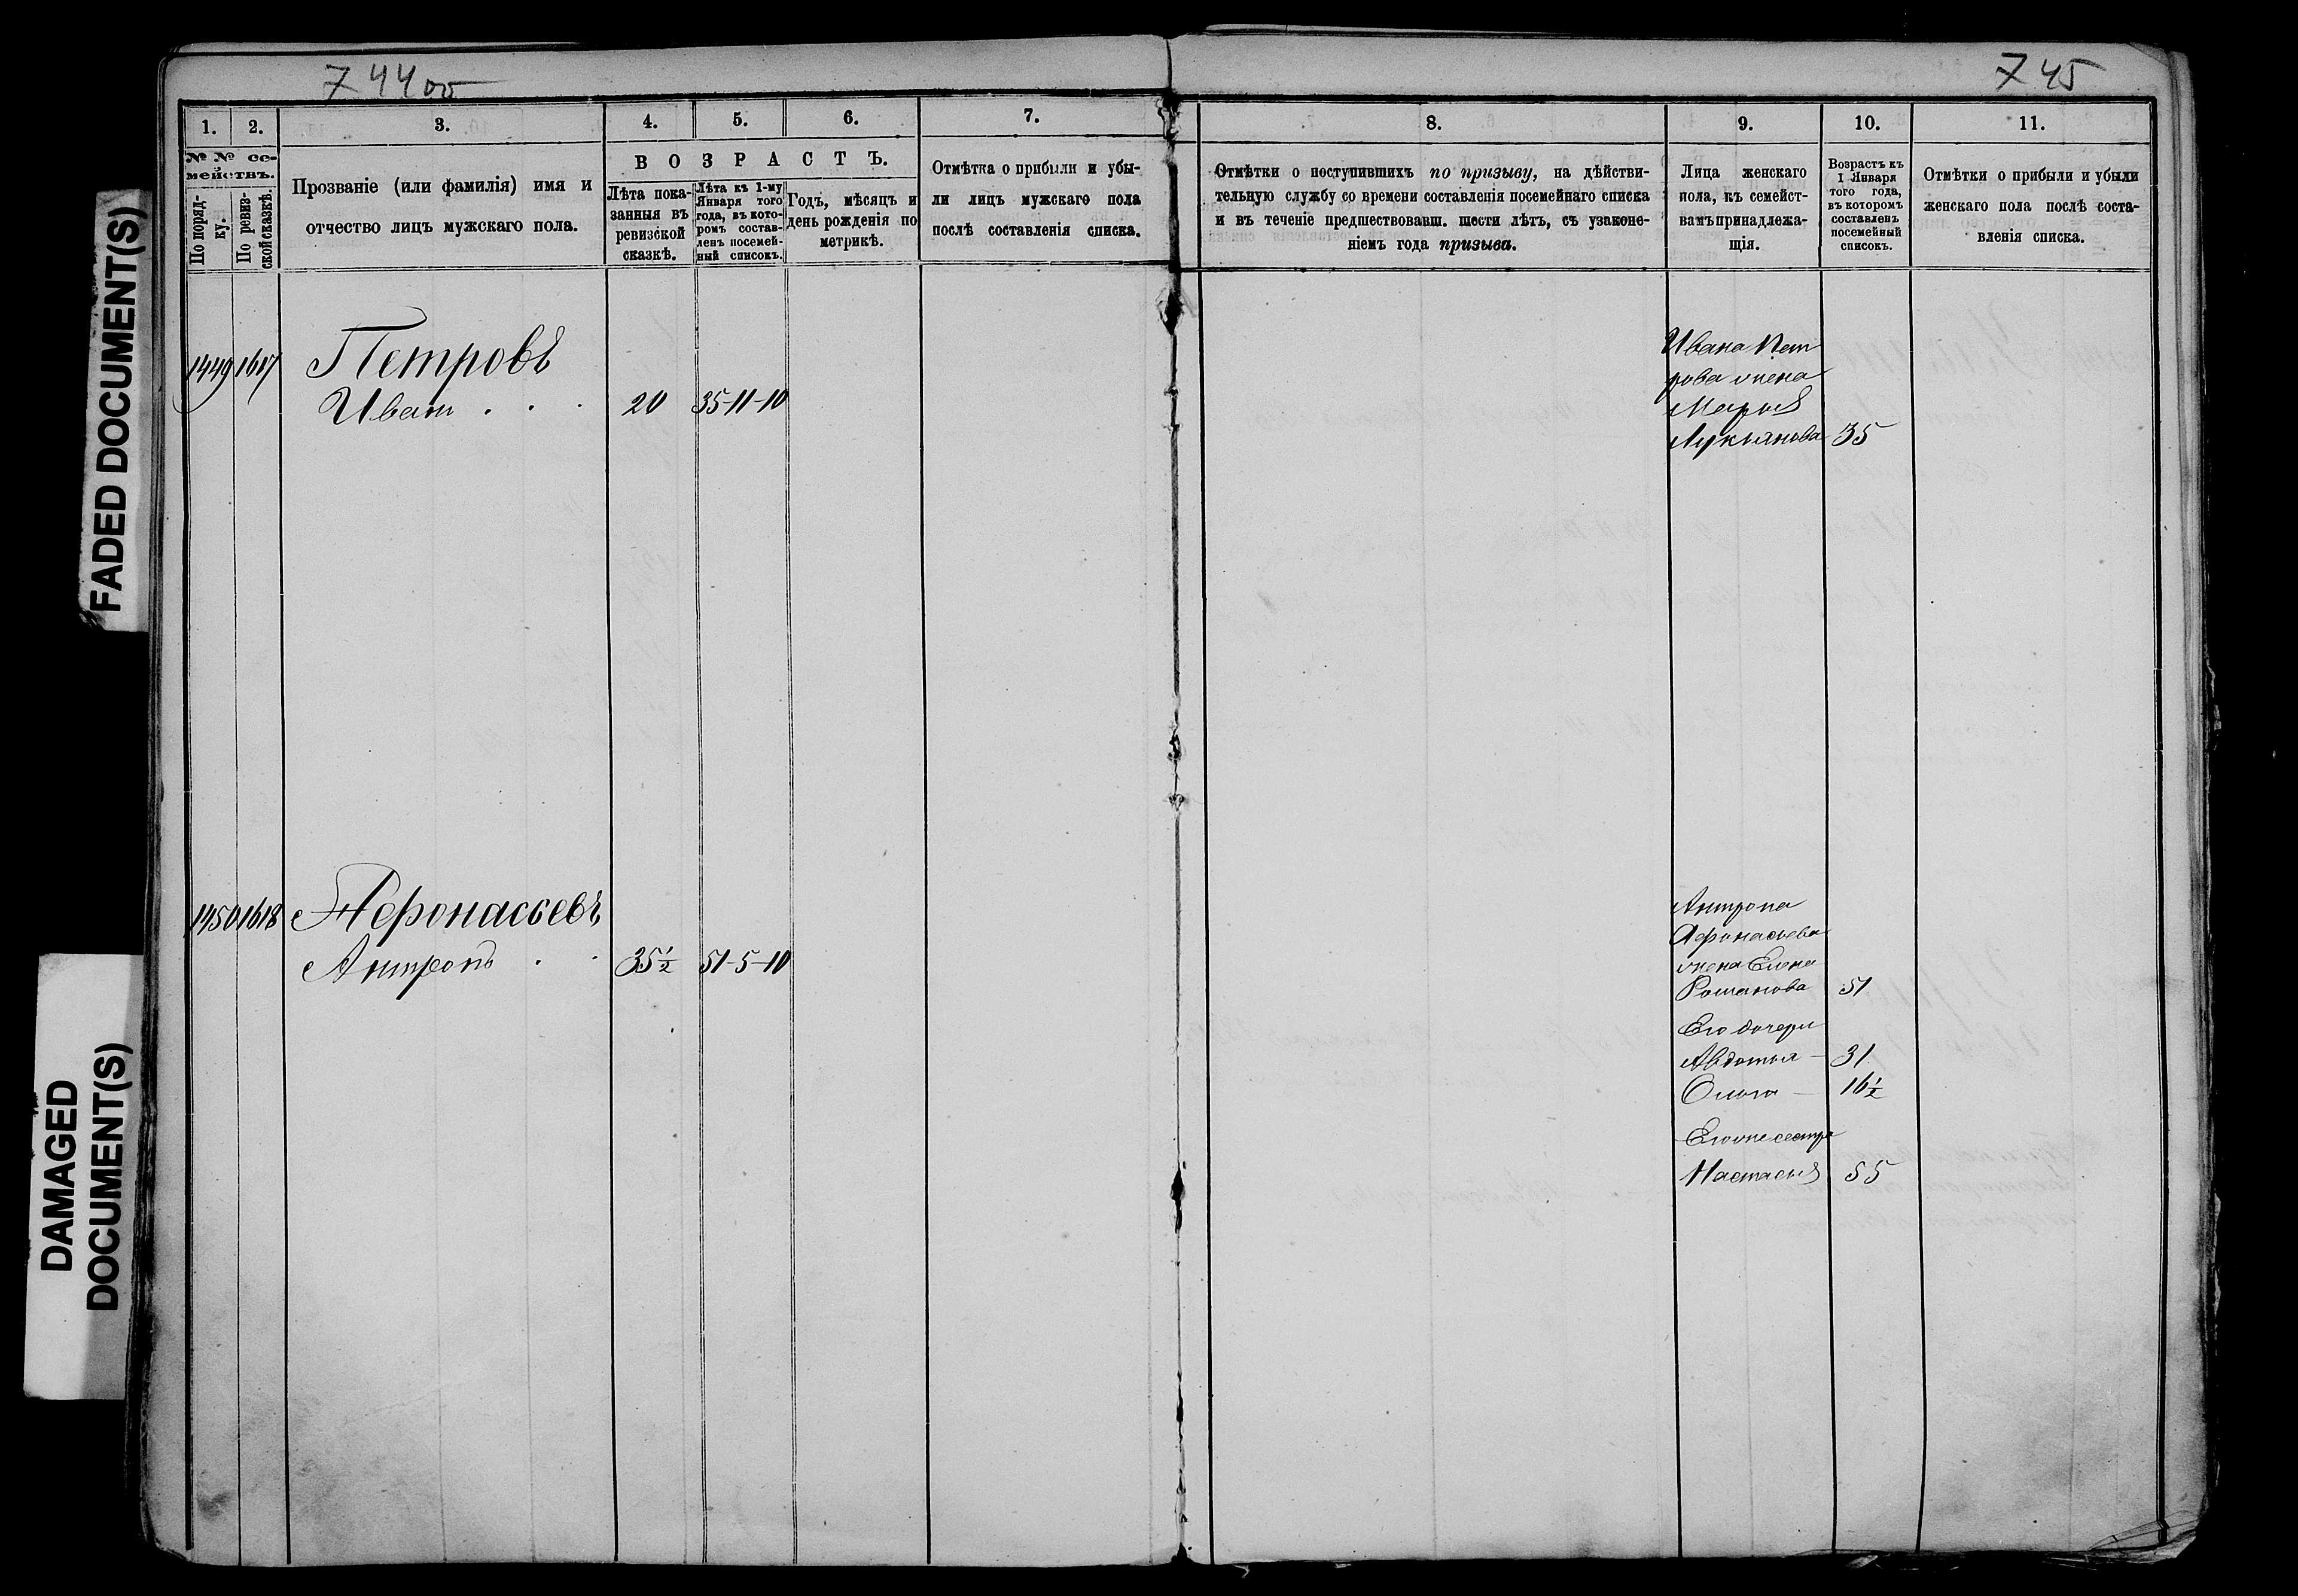 7 44 об
7 45
FADED DOCUMENT(S)
DAMAGED
DOCUMENT(S)
1. 2. 3. 4. 5. 6. 7.
№ № се-
мействъ.
По поряд-
ку.
По ревиз-
ской сказкѣ.
Прозваніе (или фамилія) имя и
отчество лицъ мужскаго пола.
ВОЗРАСТЪ.
Лѣта пока-
занныя въ
ревизской
сказкѣ.
Лѣта къ 1-му
Января того
года, въ кото-
ромъ состав-
ленъ посемей-
ный списокъ.
Годъ, мѣсяцъ и
день рожденія по
метрикѣ.
Отмѣтка о прибыли и убы-
ли лицъ мужскаго пола
послѣ составленія списка.
1449 1617 Петровъ
Иванъ . . . 20 35-11-10
1450 1618 Афонасьевъ
Антропъ . . 35½ 51-5-10
8. 9. 10. 11.
Отмѣтки о поступившихъ по призыву, на дѣйстви-
тельную службу со времени составленія посемейнаго списка
и въ теченіе предшествовавш. шести лѣтъ, съ узаконе-
ніемъ года призыва.
Лица женскаго
пола, къ семейст-
вамъ принадлежа-
щія.
Возрастъ къ
1 Января
того года,
въ которомъ
составленъ
посемейный
списокъ.
Отмѣтки о прибыли и убыли
женскаго пола послѣ соста-
вленія списка.
Ивана Пет
рова жена
Марья
Лукьянова 35
Антропа
Афонасьева
жена Елена
Романова 51
Его дочери
Авдотья — 31
Ольга — 16½
Его же сестра
Настасья 55